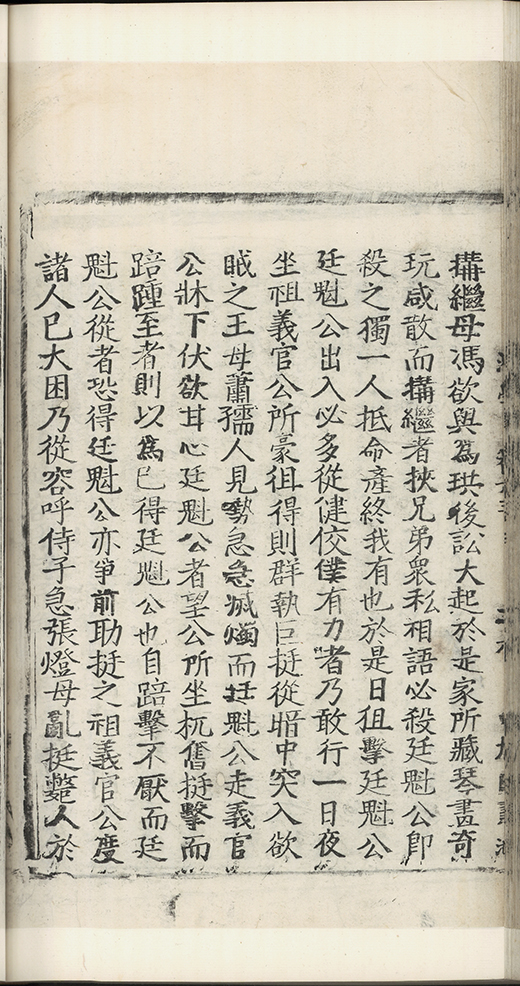 搆繼母馮欲與為珙後訟大起於是家所藏琴畫奇
玩咸散而搆繼者挾兄弟衆私相語必殺廷魁公即
殺之獨一人抵命產終我有也於是日徂擊廷魁公
廷魁公出入必多從健佼僕有力者乃敢行一日夜
坐祖義官公所豪徂得則群執巨挺從暗中突入欲
戕之王母蕭孺人見勢急急滅燭而廷魁公走義官
公牀下伏欲甘心廷魁公者望公所坐杌奮挺擊而
踣踵至者則以為已得廷魁公也自踣擊不厭而廷
魁公從者恐得廷魁公亦爭前助挺之祖義官公度
諸人已大困乃從容呼侍子急張燈母亂挺斃人於